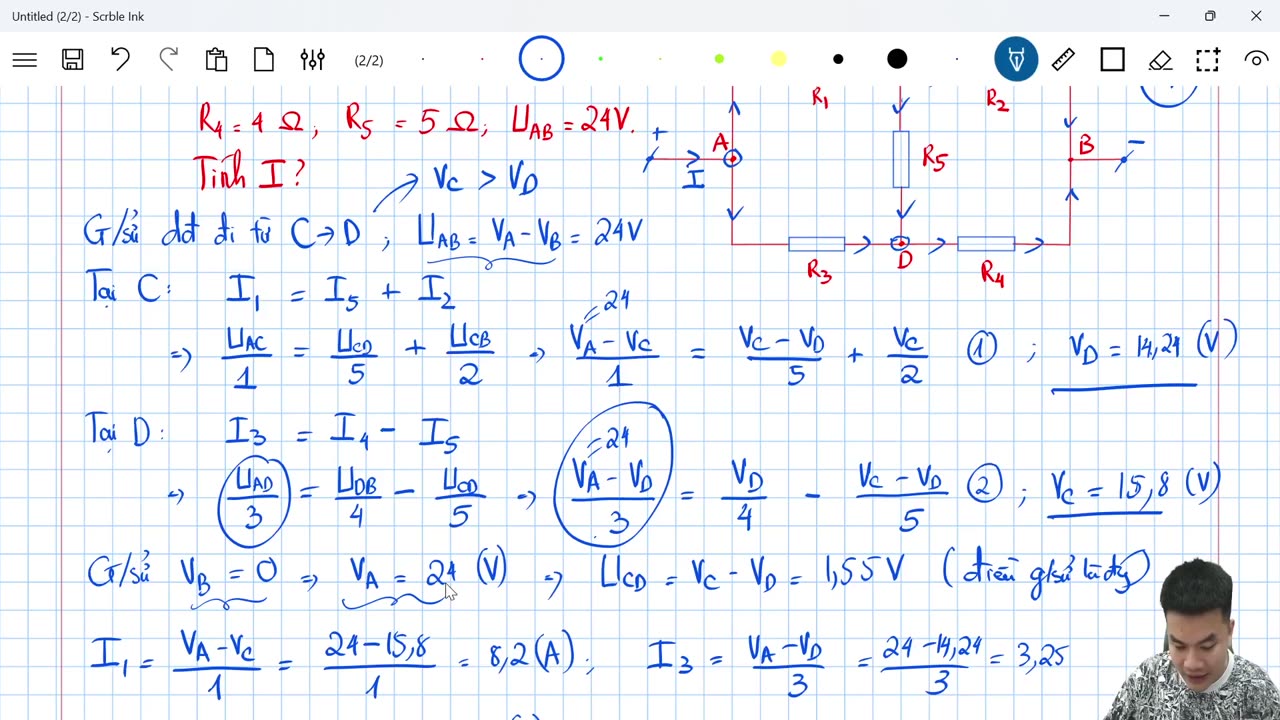 Untitled (2/2) - Scrble Ink
(2/2)
R₄ = 4 Ω; R₅ = 5 Ω; U_AB = 24V.
Tính I?
V_C > V_D
R₁
R₂
+
A
I
R₅
B
−
R₃
D
R₄
G/sử dđt đi từ C→D ; U_AB = V_A − V_B = 24V
Tại C: I₁ = I₅ + I₂
=> U_AC/1 = U_CD/5 + U_CB/2 → (V_A − V_C)/1 = (V_C − V_D)/5 + V_C/2 ① ; V_D = 14,24 (V)
= 24
Tại D: I₃ = I₄ − I₅
= 24
=> U_AD/3 = U_DB/4 − U_CD/5 → (V_A − V_D)/3 = V_D/4 − (V_C − V_D)/5 ② ; V_C = 15,8 (V)
G/sử V_B = 0 => V_A = 24 (V) => U_CD = V_C − V_D = 1,55V (điều g/sử là đúng)
I₁ = (V_A − V_C)/1 = (24 − 15,8)/1 = 8,2 (A); I₃ = (V_A − V_D)/3 = (24 − 14,24)/3 = 3,25